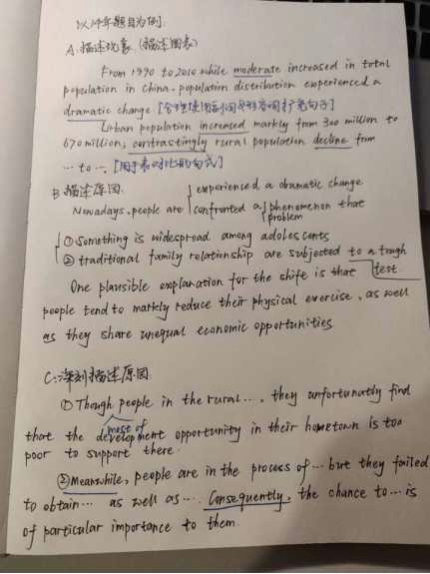 以14年题目为例.
A. 描述现象. (描述图表)
From 1990 to 2010 while moderate increased in total
population in China, population distribution experienced a
dramatic change [合理使用不同形容词扩充句子]
Urban population increased markly from 300 million to
670 million, contrastingly rural population decline from
… to …. [用于表对比的句式]
B. 描述原因. experienced a dramatic change
Nowadays, people are confronted a phenomenon that
problem
① something is widespread among adolescents
② traditional family relationship are subjected to a tough
test
One plausible explanation for the shift is that
people tend to markly reduce their physical exercise, as well
as they share unequal economic opportunities
C: 深刻描述原因
① Though people in the rural …, they unfortunatly find
most of
that the development opportunity in their hometown is too
poor to support there.
② Meanwhile, people are in the process of … but they failed
to obtain … as well as …. Consequently, the chance to … is
of particular importance to them.